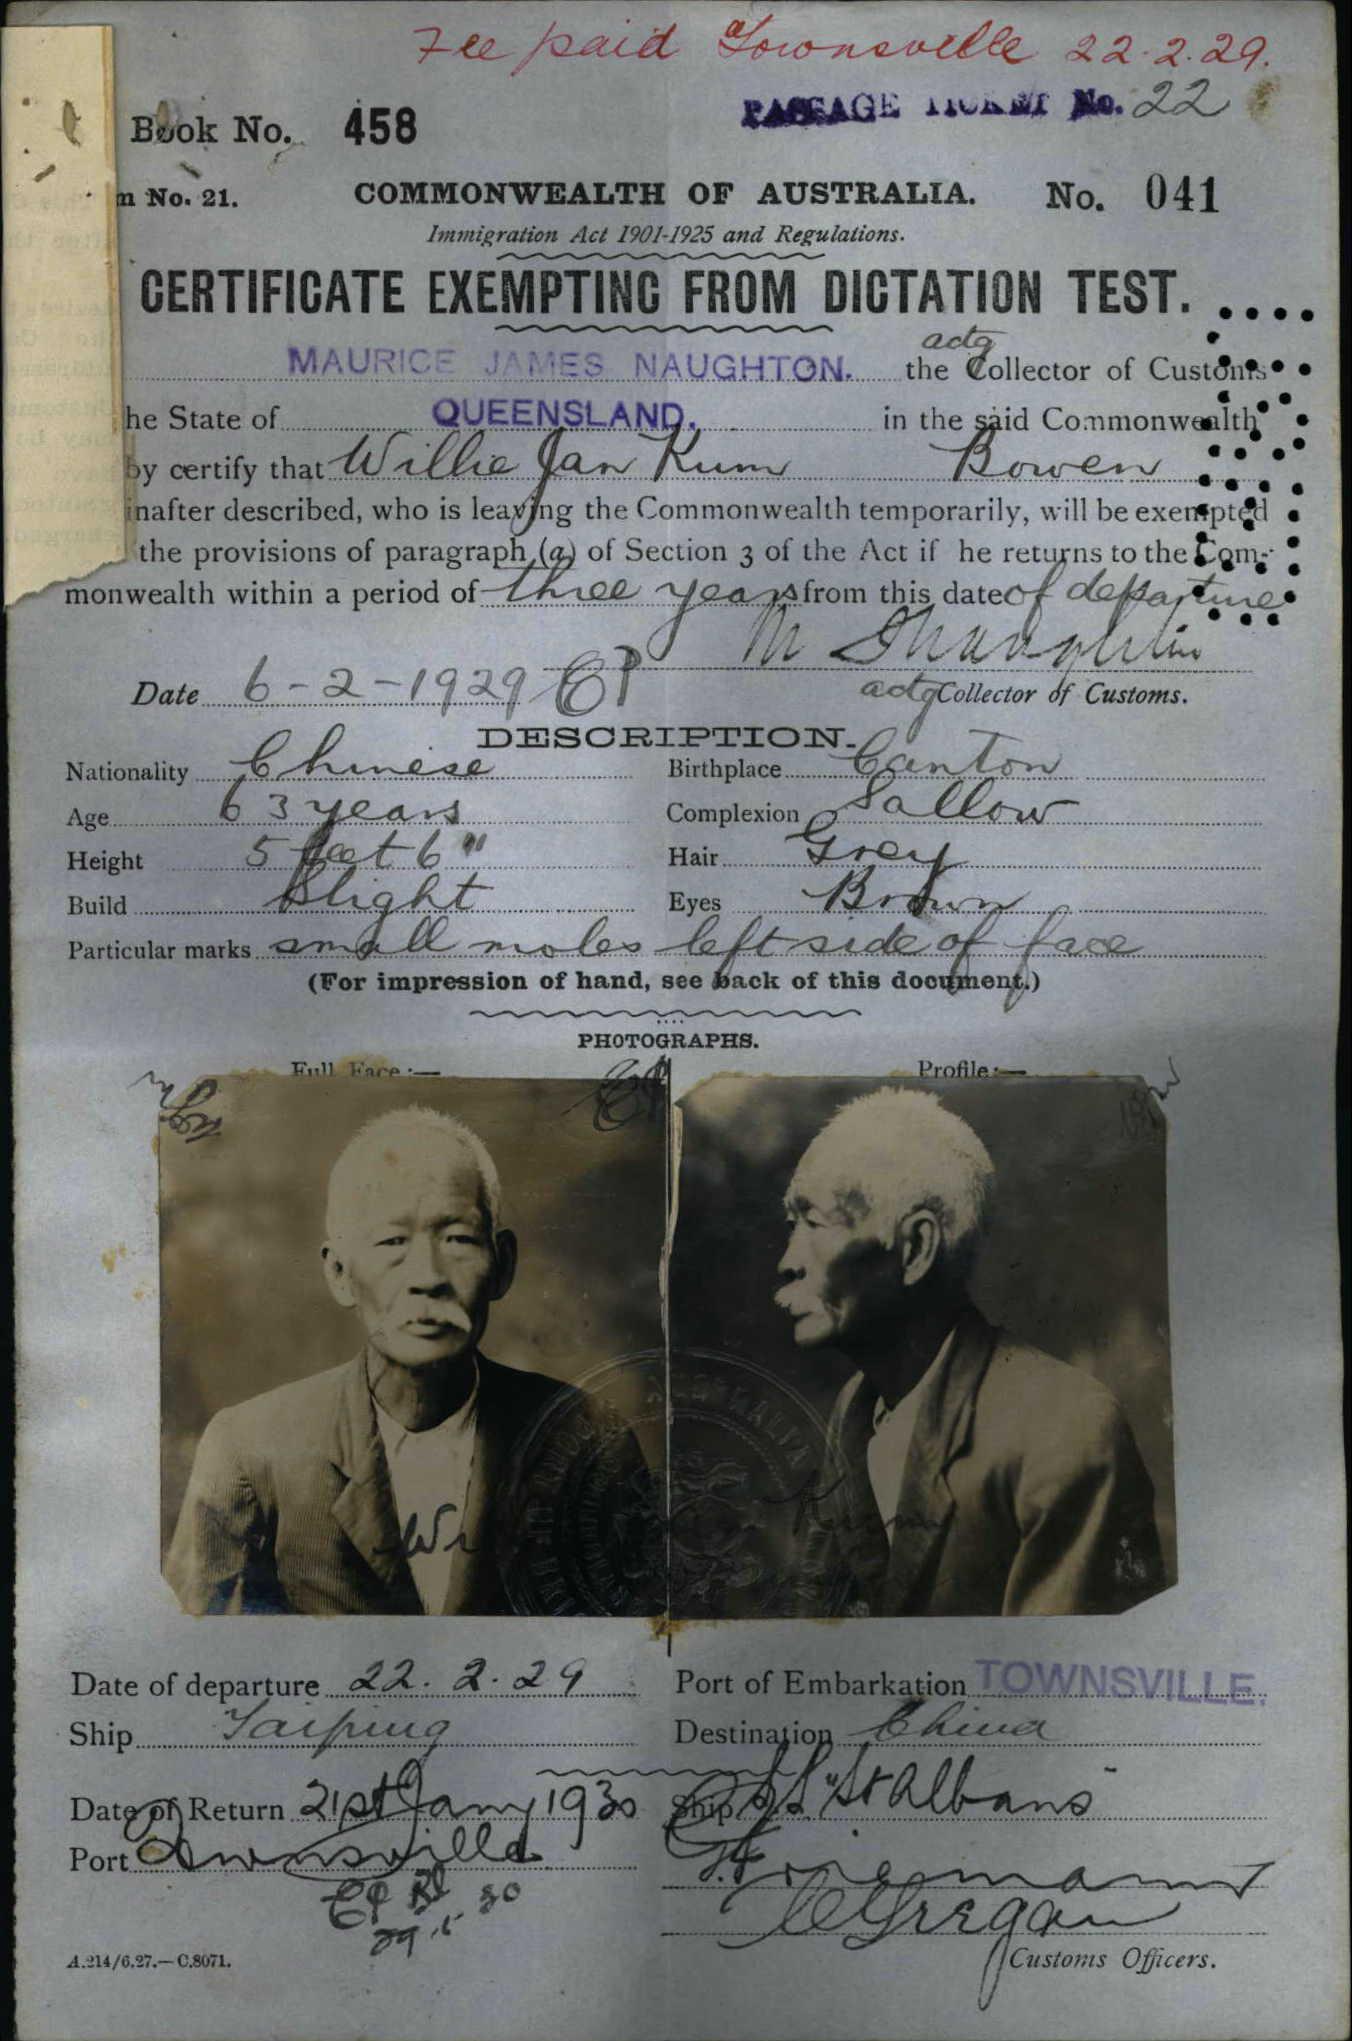 Fee paid Townsville 22.2.29.
PASSAGE TICKET No. 22
Book No. 458
m No. 21. COMMONWEALTH OF AUSTRALIA. No. 041
Immigration Act 1901-1925 and Regulations.
CERTIFICATE EXEMPTING FROM DICTATION TEST.
actg
MAURICE JAMES NAUGHTON. the Collector of Customs
he State of QUEENSLAND. in the said Commonwealth
by certify that Willie Jan Kum Bowen
inafter described, who is leaving the Commonwealth temporarily, will be exempted
the provisions of paragraph (a) of Section 3 of the Act if he returns to the Com-
monwealth within a period of three years from this date of departure
Date 6-2-1929
actg Collector of Customs.
DESCRIPTION.
Nationality Chinese Birthplace Canton
Age 63 years Complexion Sallow
Height 5 feet 6" Hair Grey
Build Slight Eyes Brown
Particular marks small moles left side of face
(For impression of hand, see back of this document.)
PHOTOGRAPHS.
Full Face:— Profile:—
Kum
Date of departure 22.2.29 Port of Embarkation TOWNSVILLE.
Ship Taiping Destination China
Date of Return 21st Jany 1930 Ship SS "St Albans"
Port Townsville
29.5.30
A.214/6.27.—C.8071. Customs Officers.